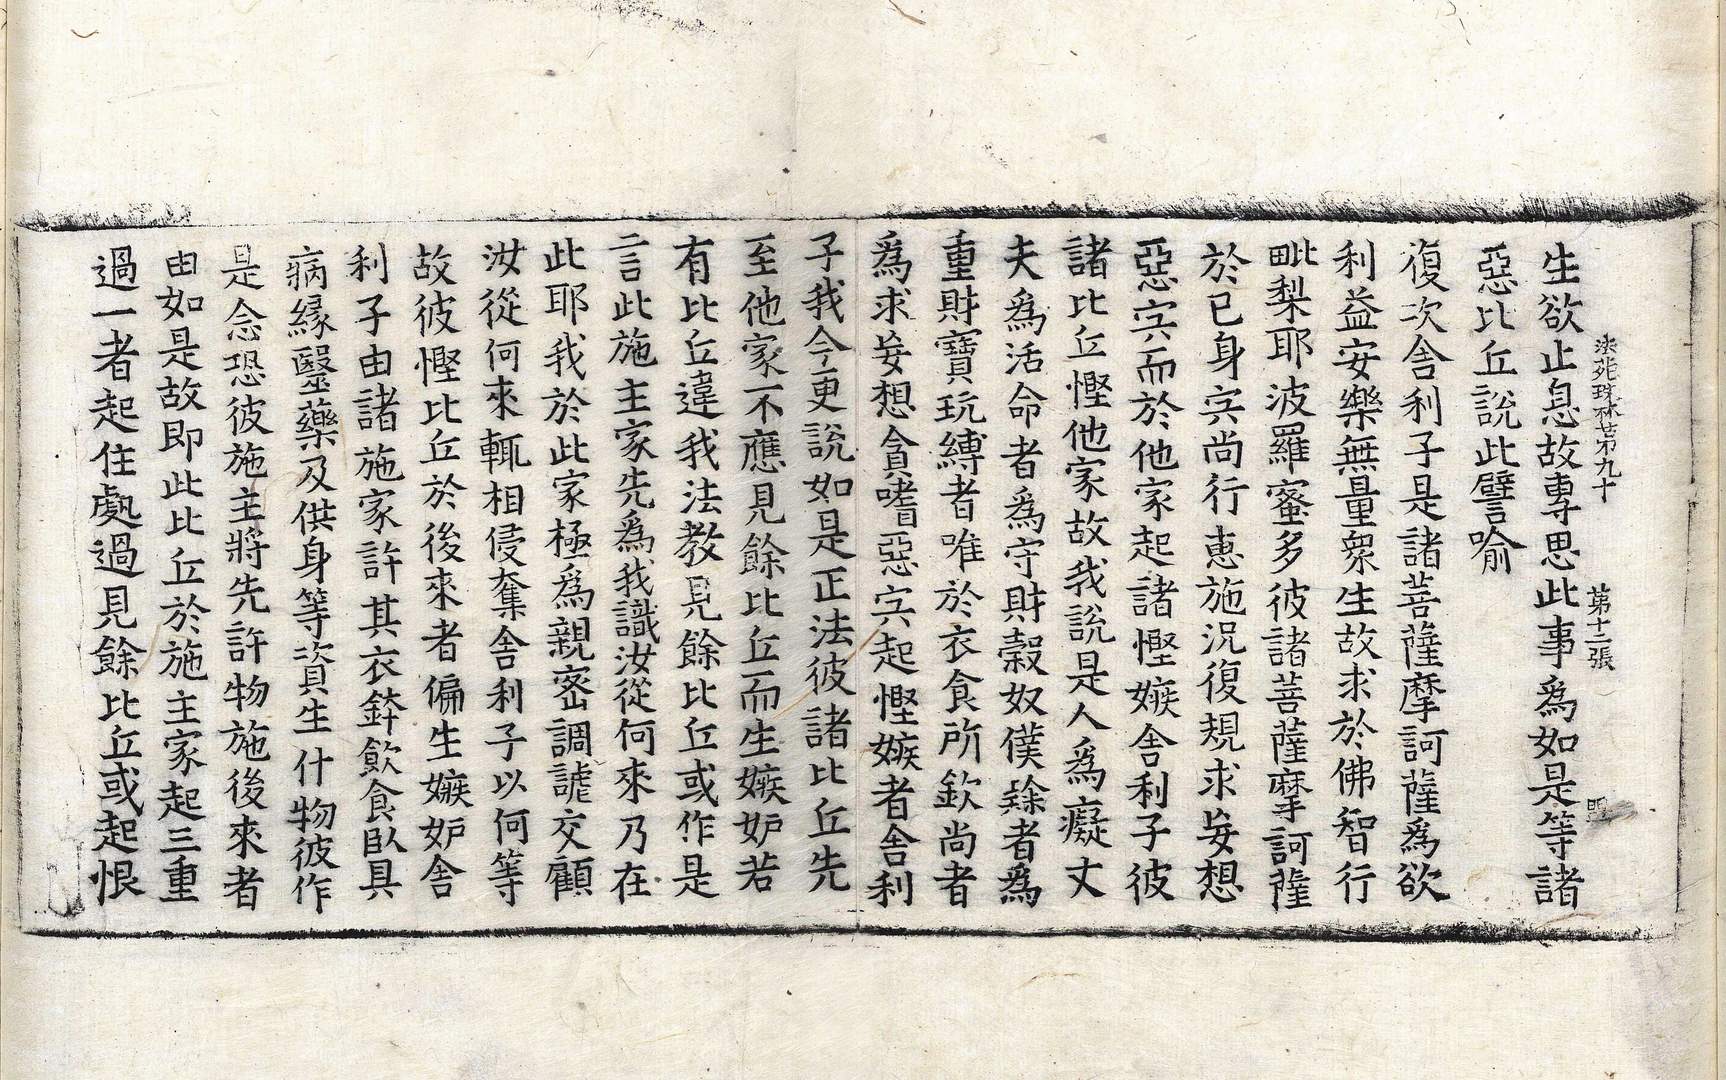 法苑珠林第九十 第十二張 盟
生欲止息故專思此事爲如是等諸
惡比丘說此譬喻
復次舍利子是諸菩薩摩訶薩爲欲
利益安樂無量衆生故求於佛智行
毗梨耶波羅蜜多彼諸菩薩摩訶薩
於已身宍尚行惠施況復規求妄想
惡宍而於他家起諸慳嫉舍利子彼
諸比丘慳他家故我說是人爲癡丈
夫爲活命者爲守財糓奴僕隸者爲
重財寶玩縛者唯於衣食所欽尚者
爲求妄想貪嗜惡宍起慳嫉者舍利
子我今更說如是正法彼諸比丘先
至他家不應見餘比丘而生嫉妒若
有比丘違我法教見餘比丘或作是
言此施主家先爲我識汝從何來乃在
此耶我於此家極爲親密調謔交顧
汝從何來輒相侵奪舍利子以何等
故彼慳比丘於後來者偏生嫉妒舍
利子由諸施家許其衣鉢飲食臥具
病緣毉藥及供身等資生什物彼作
是念恐彼施主將先許物施後來者
由如是故即此比丘於施主家起三重
過一者起住處過見餘比丘或起恨